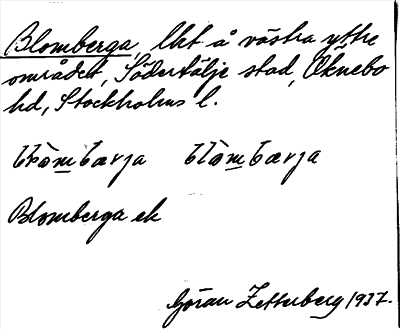 Blomberga, lht å västra yttre
området, Södertälje stad, Öknebo
hd, Stockholms l.
blòmbærja blòmbærja
Blomberga ek
Göran Zetterberg 1937.